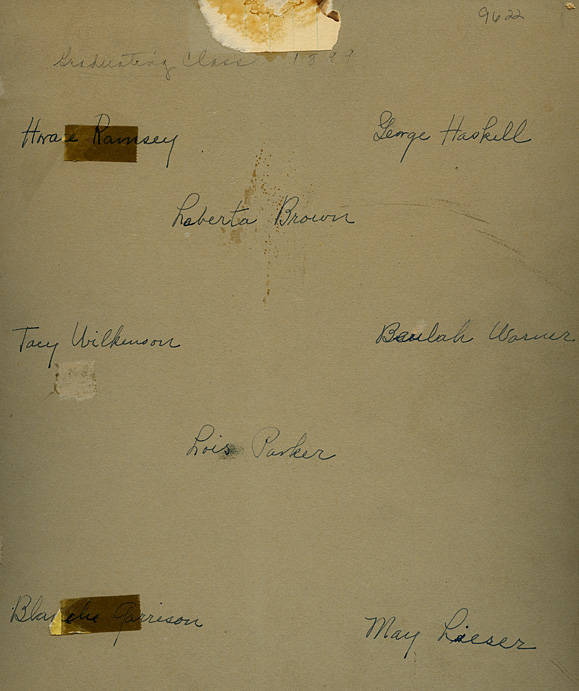 9622
Graduating Class 1899
Horace Ramsey George Haskill
Loberta Brown
Tacy Wilkinson Beulah Warner
Lois Parker
Blanche Garrison May Lieser